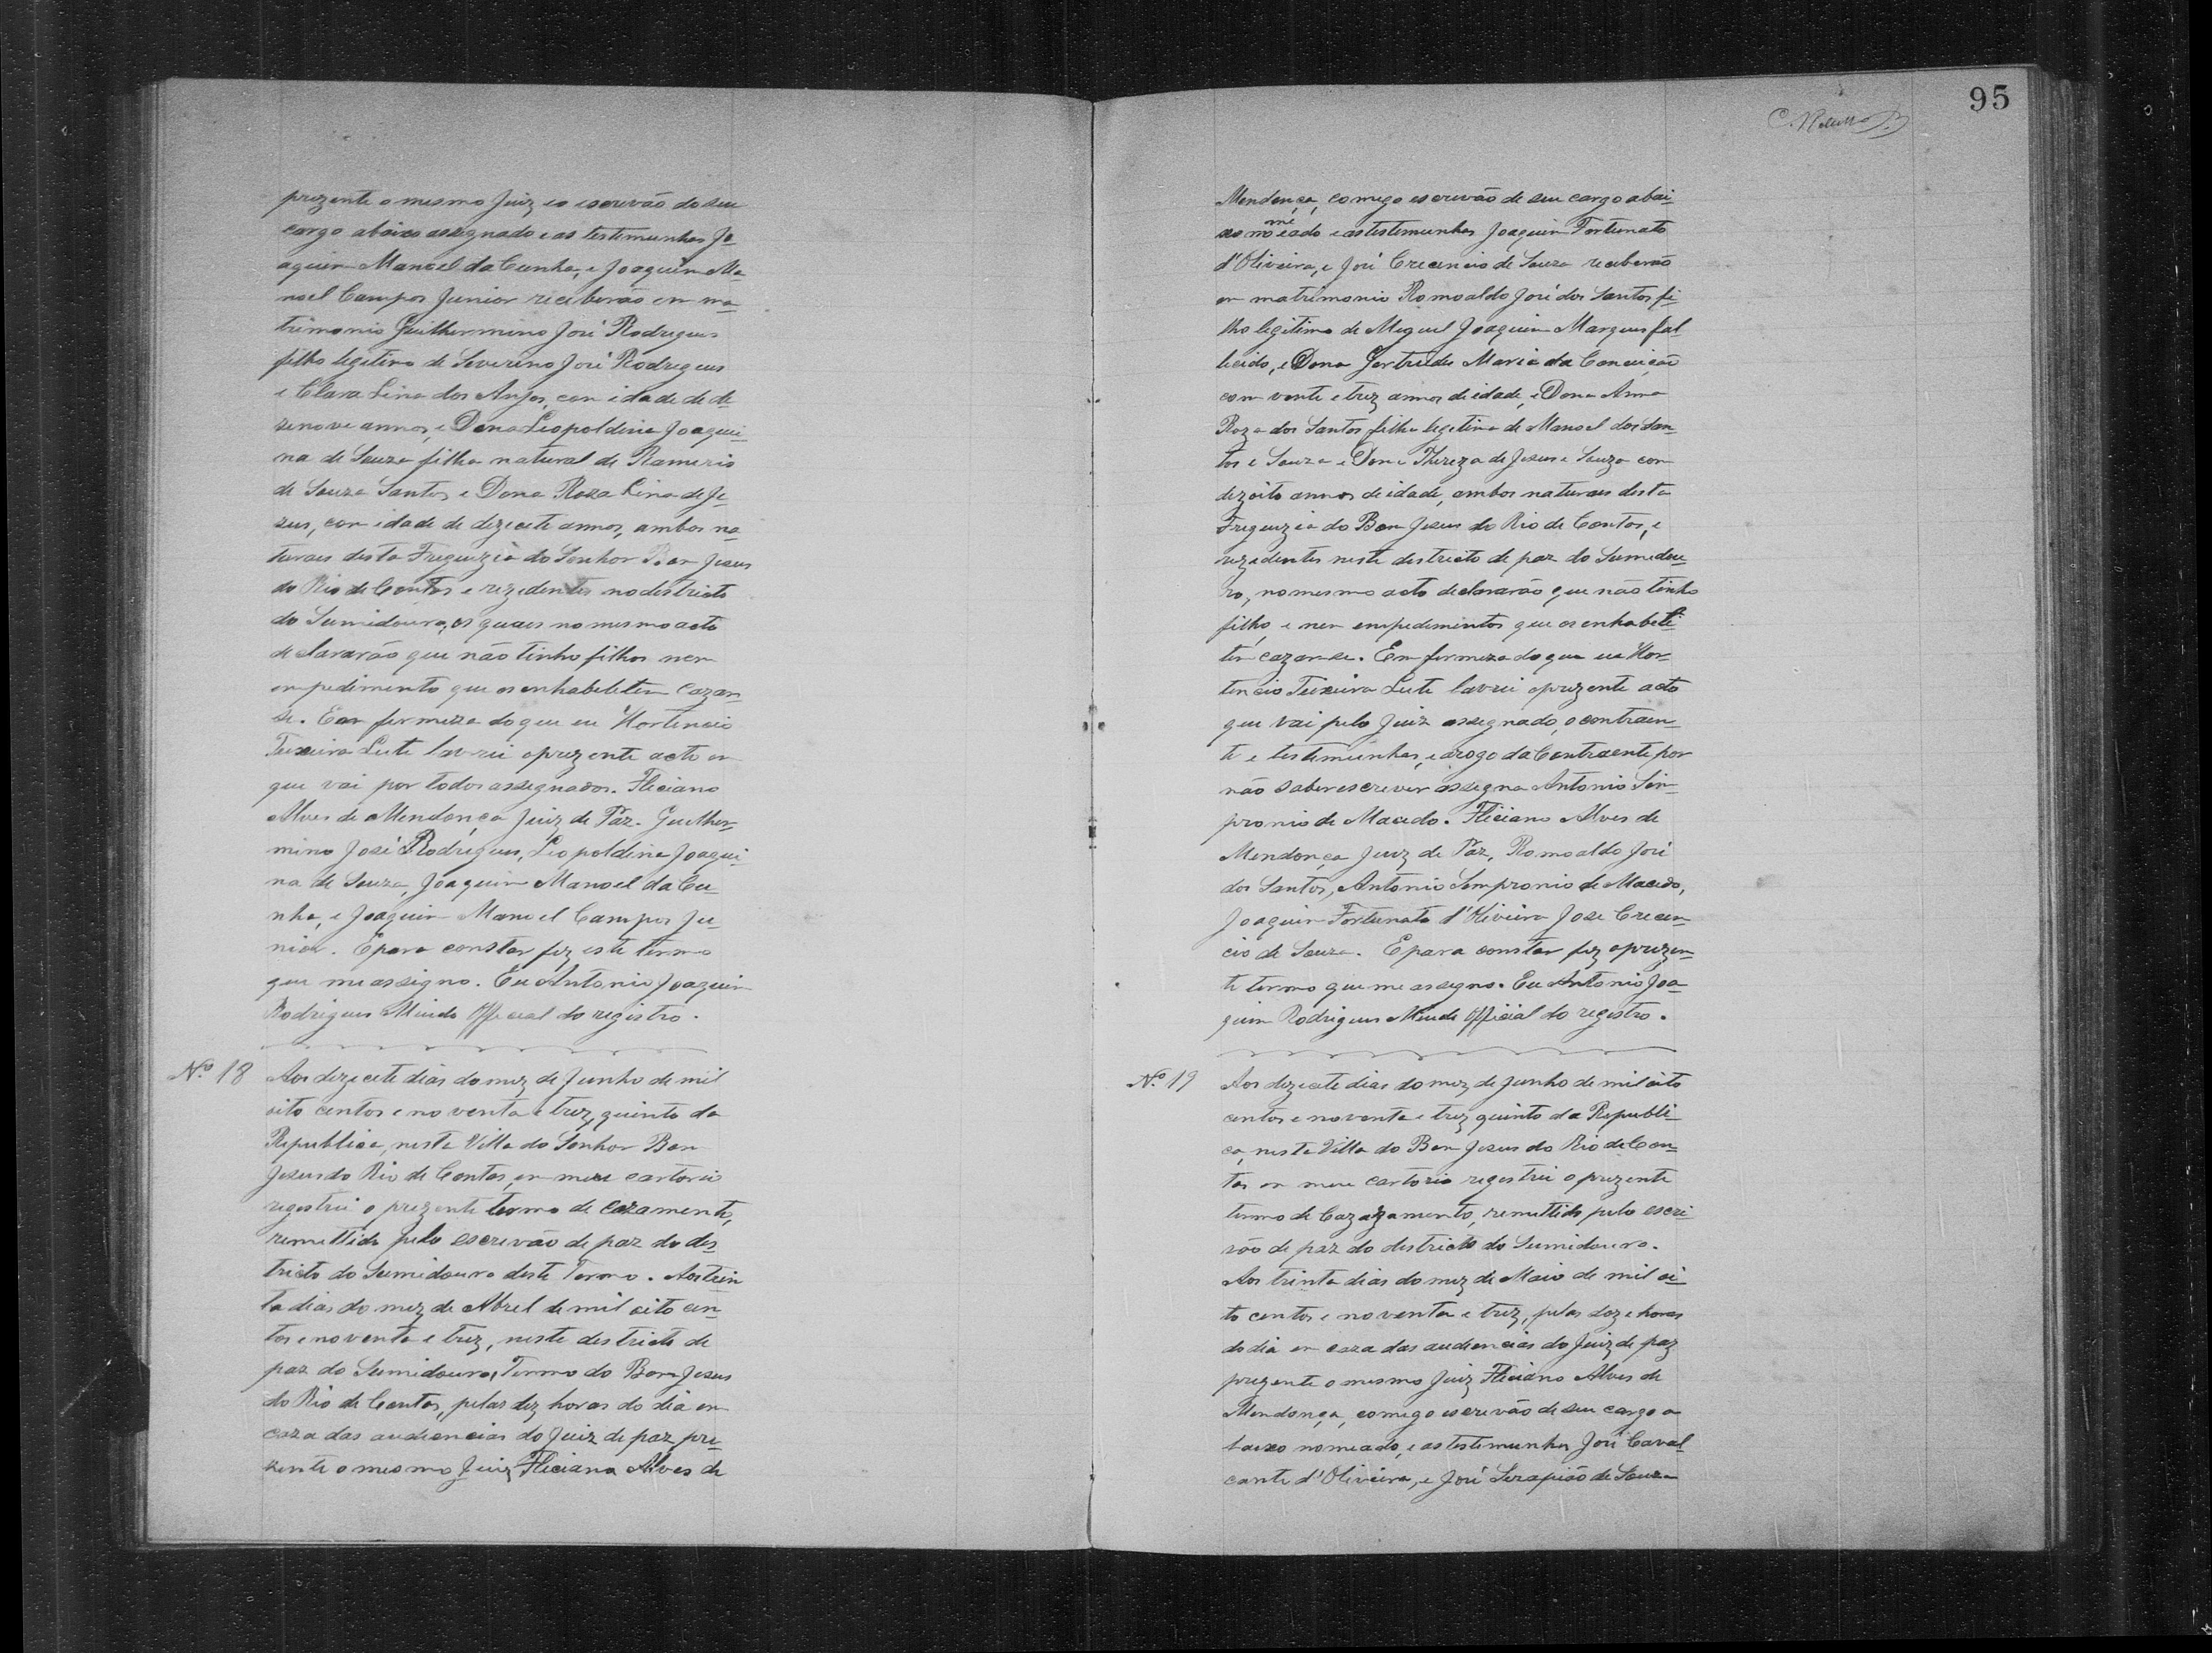 prezente o mesmo Juiz eo escrivão do seu
cargo abáixo assignado e as testemunhas Jo-
aquim Manoel da Cunha, e Joaquim Ma-
noel Campos Junior receberão em ma-
trimonio Guilhermino José Rodrigues
filho legitimo de Severino José Rodrigues
e Clara Lina dos Anjos, com idade de de-
senove annos, e Dona Leopoldina Joaqui-
na de Souza filha natural de
de Souza Santos e Dona Roza Lina de Je-
sus, com idade de dezecete annos, ambos na-
turaes desta Freguezia do Senhor Bom Jesus
do Rio de Contas e rezedentes no destricto
do Sumidouro, os quaes no mesmo acto
declararão que não tinho filhos nem
empedimento que os enhabeletem cazar-
se. Em fermeza do que eu Hortencio
Teixeira Leite lavrei o prezente acto em
que vai por todos assegnados. Fliciano
Alves de Mendonça Juiz de Paz. Guelher-
mino José Rodrigues, Leopoldina Joaqui-
na de Souza, Joaquim Manoel da Cu-
nha, e Joaquim Manoel Campos Ju-
nior. E para constar fiz este termo
que me assigno. Eu Antonio Joaquim
Rodrigues Official do registro.
Nº 18 Aos dezecete dias do mez de Junho de mil
oito centos e noventa e trez, quinto da
Republica, nesta Villa do Senhor Bom
Jesus do Rio de Contas, em meu cartorio
registrei o prezente termo de cazamento,
remettido pelo escrevão de paz do des-
tricto do Sumidouro deste Termo. Aos trin
ta dias do mez de Abrel de mil oito cen-
tos e noventa e trez, neste destricto de
paz do Sumidouro, Termo do Bom Jesus
do Rio de Contas, pelas dez horas do dia em
caza das audiencias do Juiz de paz pre-
zente o mesmo Juiz Fliciano Alves de
95
Mendonça, comego escrevão de seu cargo abai-
me
xo noeado e as testemunhas Joaquim Fortunato
d'Oliveira, e José Crecencio de Souza receberão
em matrimonio Romoaldo José dos Santos fi-
lho legitimo de Miguel Joaquim Marques fal-
licido, e Dona Gertrudes Maria da Conceição
com vente e trez annos de idade, e Dona Anna
Roza dos Santos filha legetima de Manoel dos San-
tos e Souza e Dona Thereza de Jesus e Souza com
dezoito annos de idade, ambos naturaes desta
Freguezia do Bom Jesus do Rio de Contas, e
rezedentes neste destricto de paz do Sumidou-
ro, no mesmo acto declararão que não tinho
filho e nem empedimentos que os enhabeli-
tem cazar-se. Em fermeza do que eu Hor-
tencio Teixeira Leite lavrei o prezente acto
que vai pelo Juiz assegnado, o contraen-
te e testemunhas, e arogo da Contraente por
não saber escrever assegna Antonio Sem-
pronio de Macedo. Fliciano Alves de
Mendonça Juiz de Paz, Romoaldo José
dos Santos, Antonio Sempronio de Macedo,
Joaquim Fortunato d'Oliveira Jose Crecen-
cio de Souza. E para constar fiz o prezen-
te termo que me assegno. Eu Antonio Joa-
quim Rodrigues Official do registro.
Nº 19 Aos dezecete dias do mez de Junho de mil oito
centos e noventa e trez quinto da Republi-
ca, nesta Villa do Bom Jesus do Rio de Con-
tas em meu cartorio registrei o prezente
termo de Cazazamento, remettido pelo escri-
vão de paz do destricto do Sumidouro.
Aos trinta dias do mez de Maio de mil oi-
to centos e noventa e trez, pelas doze horas
do dia em caza das audiencias do Juiz de paz
prezente o mesmo Juiz Fliciano Alves de
Mendonça, comego escrevão de seu cargo a
baixo nomeado, e as testemunhas José Caval-
cante d'Oliveira, e José Serapião de Souza